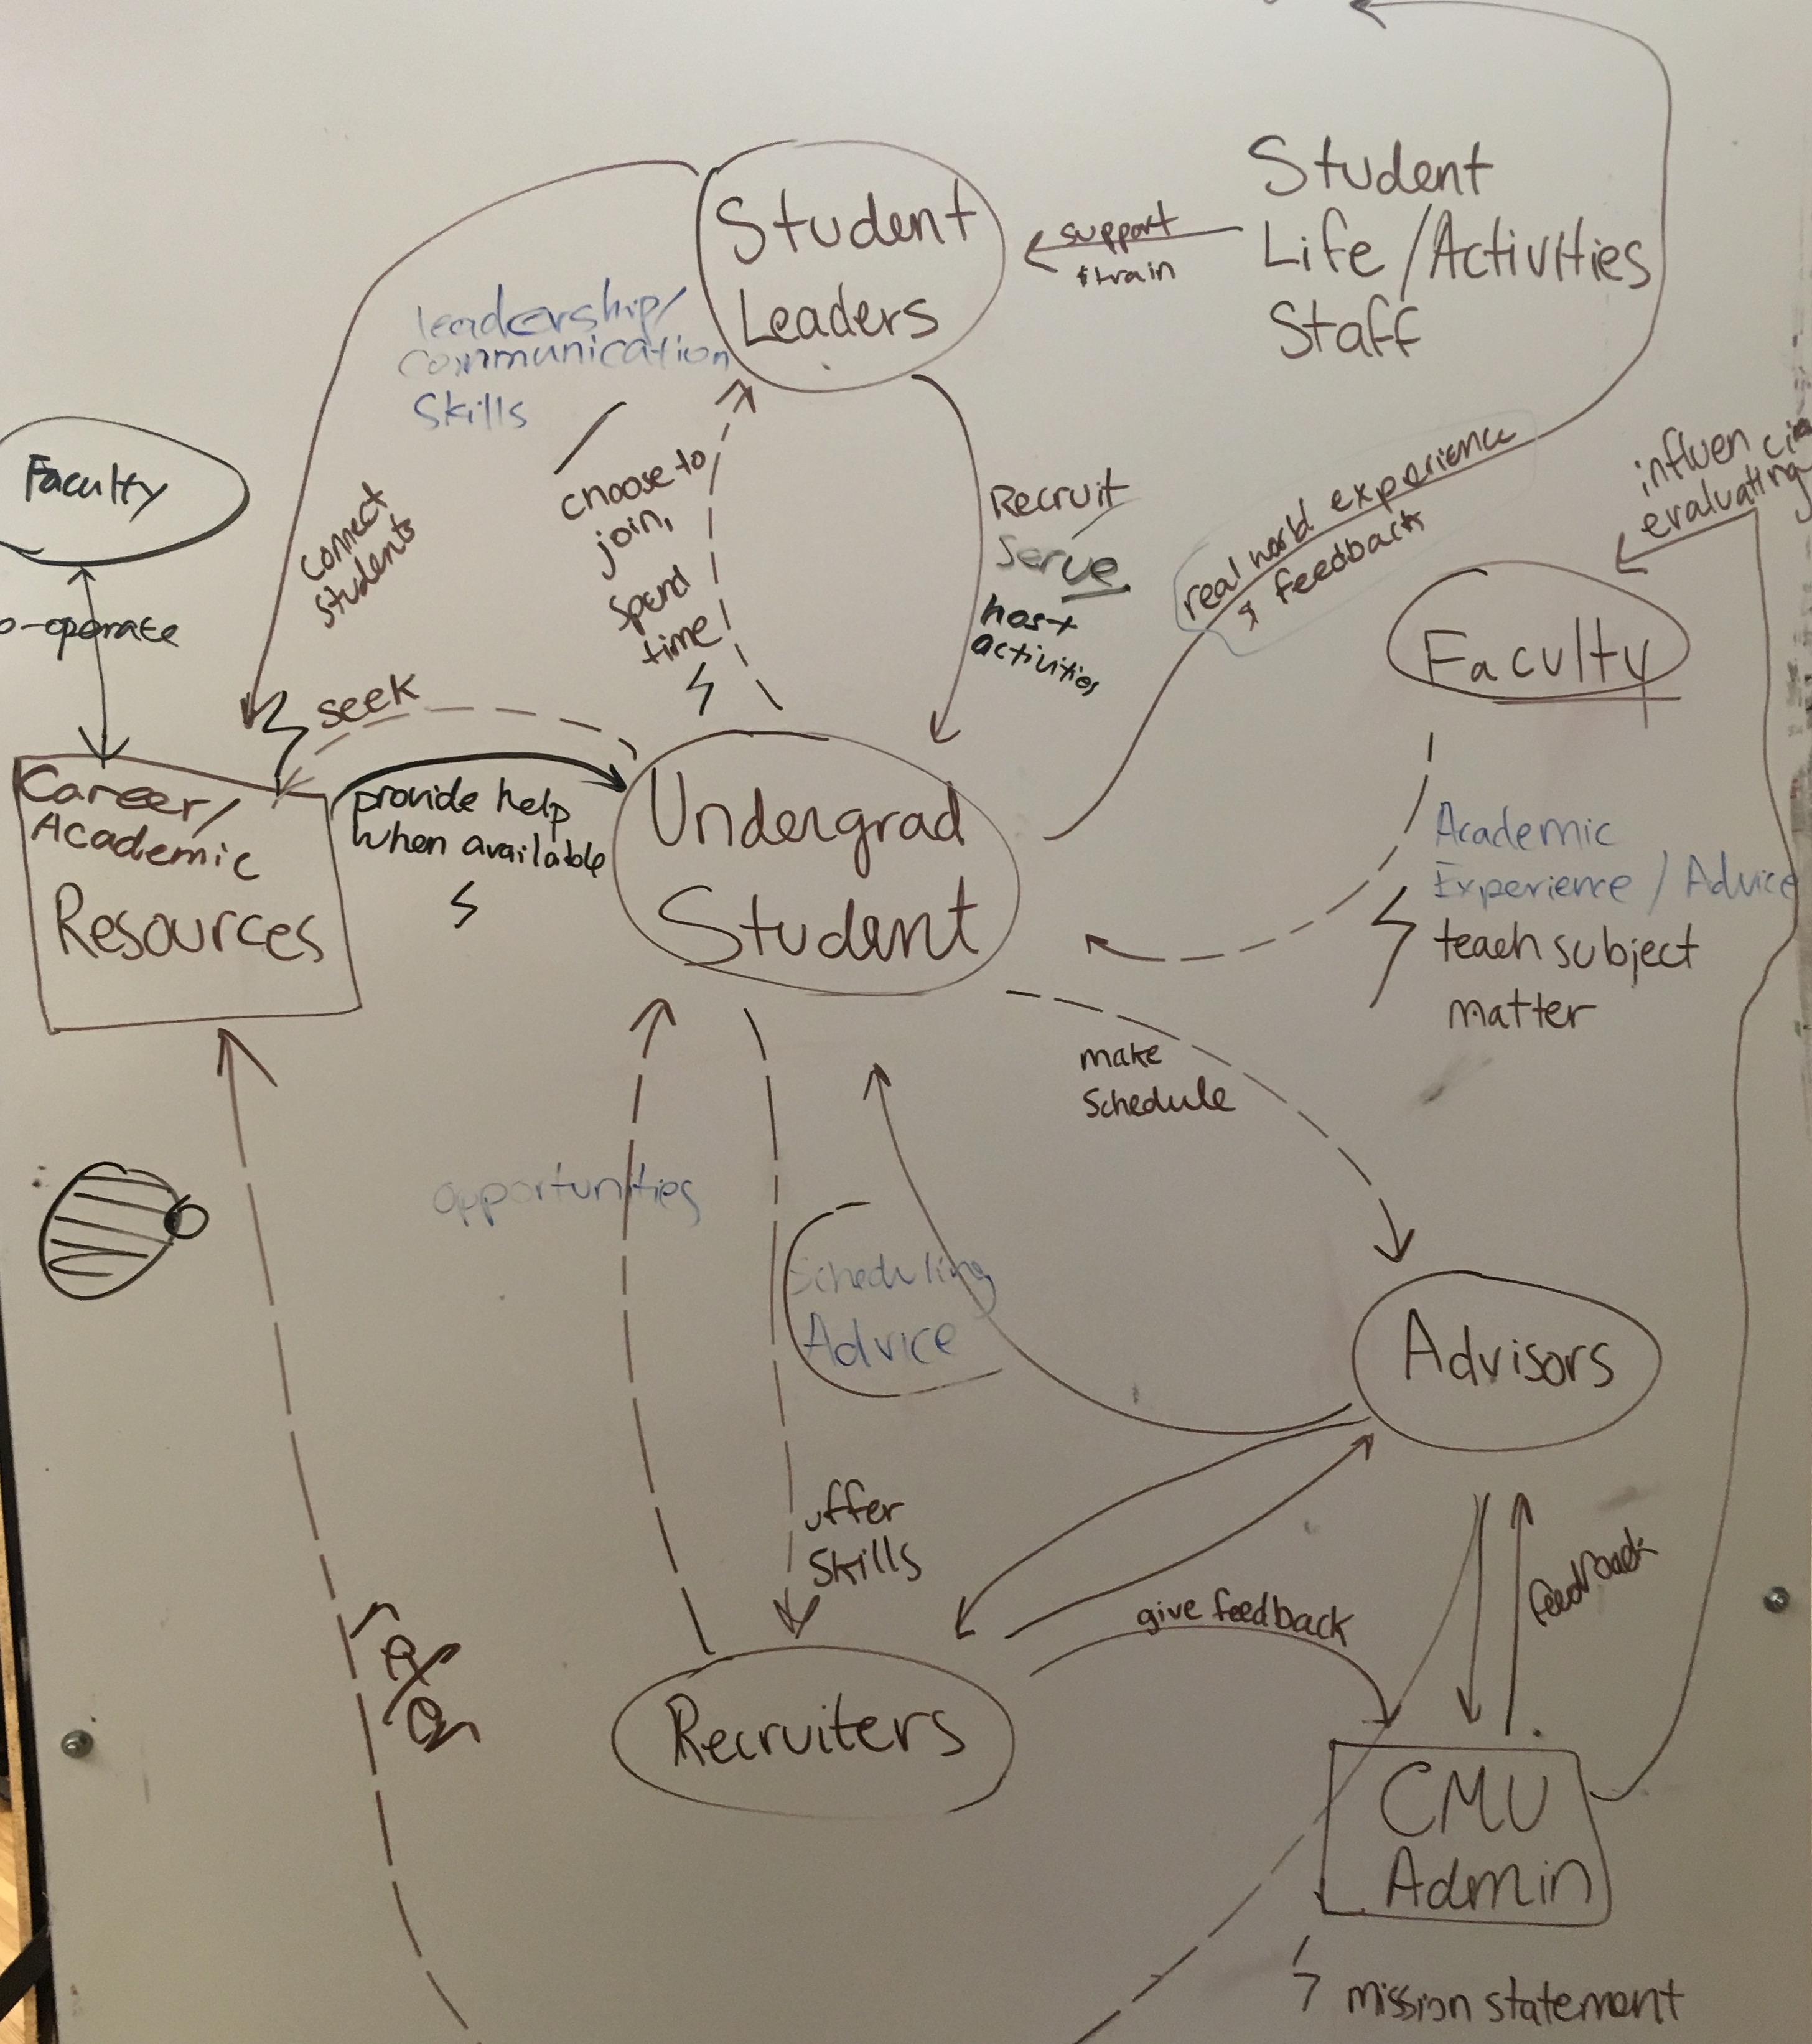 Student
Leaders
support
& train
Student
Life / Activities
Staff
leadership/
communication
Skills
Faculty
o-operate
connect
students
choose to
join,
spend
time
Recruit
Serve
host
activities
real world experience
& feedback
influenci
evaluating
Faculty
seek
Career/
Academic
Resources
provide help
when available
Undergrad
Student
Academic
Experience / Advice
teach subject
matter
make
Schedule
opportunities
Scheduling
Advice
Advisors
offer
skills
give feedback
feedback
refer
Recruiters
CMU
Admin
mission statement